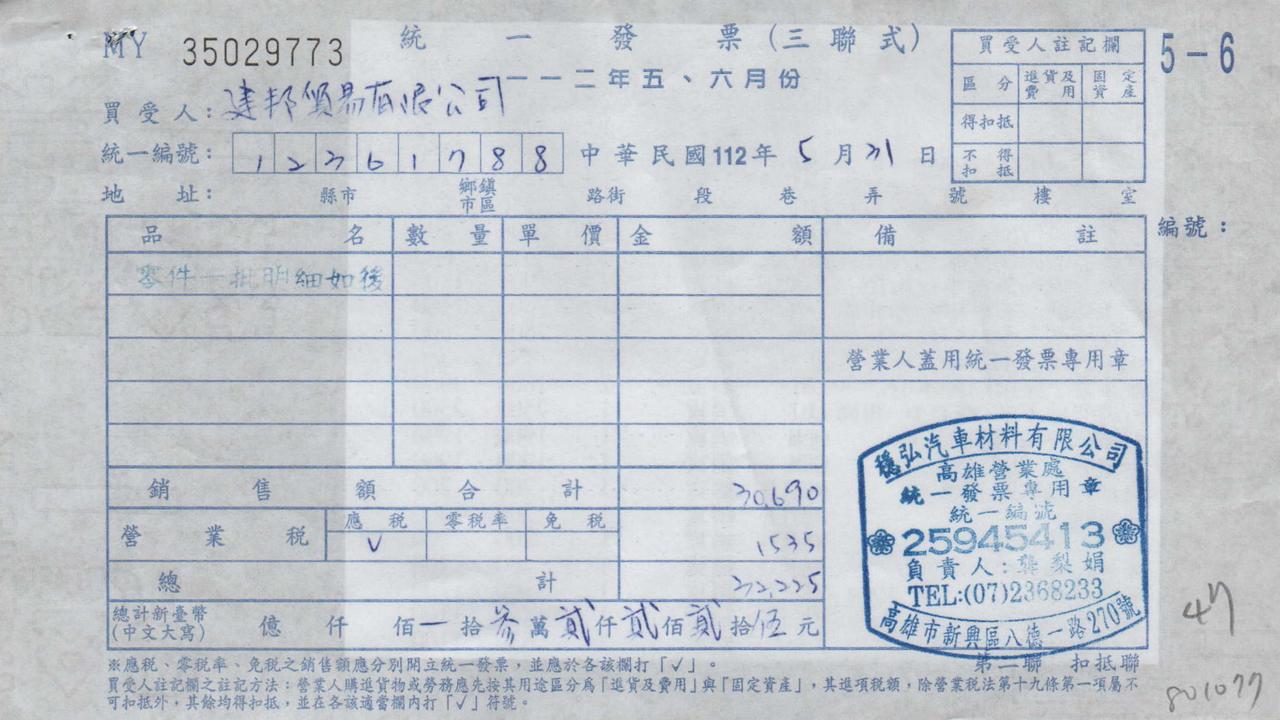 MY 35029773 統一發票(三聯式) 5-6
一一二年五、六月份
買受人:建邦貿易有限公司
統一編號:12361788 中華民國112年5月31日
地址: 縣市 鄉鎮市區 路街 段 巷 弄 號 樓 室
買受人註記欄
區分 進貨及費用 固定資產
得扣抵
不得扣抵
品名 數量 單價 金額 備註 編號:
零件一批明細如後
營業人蓋用統一發票專用章
銷售額合計 30,690
營業稅 應稅 零稅率 免稅 1535
√
總計 32,225
總計新臺幣(中文大寫) 億仟佰一拾參萬貳仟貳佰貳拾伍元
穩弘汽車材料有限公司
高雄營業處
統一發票專用章
統一編號
25945413
負責人:龔梨娟
TEL:(07)2368233
高雄市新興區八德一路270號
47
※應稅、零稅率、免稅之銷售額應分別開立統一發票,並應於各該欄打「√」。
第二聯 扣抵聯
買受人註記欄之註記方法:營業人購進貨物或勞務應先按其用途區分為「進貨及費用」與「固定資產」,其進項稅額,除營業稅法第十九條第一項屬不
可扣抵外,其餘均得扣抵,並在各該適當欄內打「√」符號。
801077